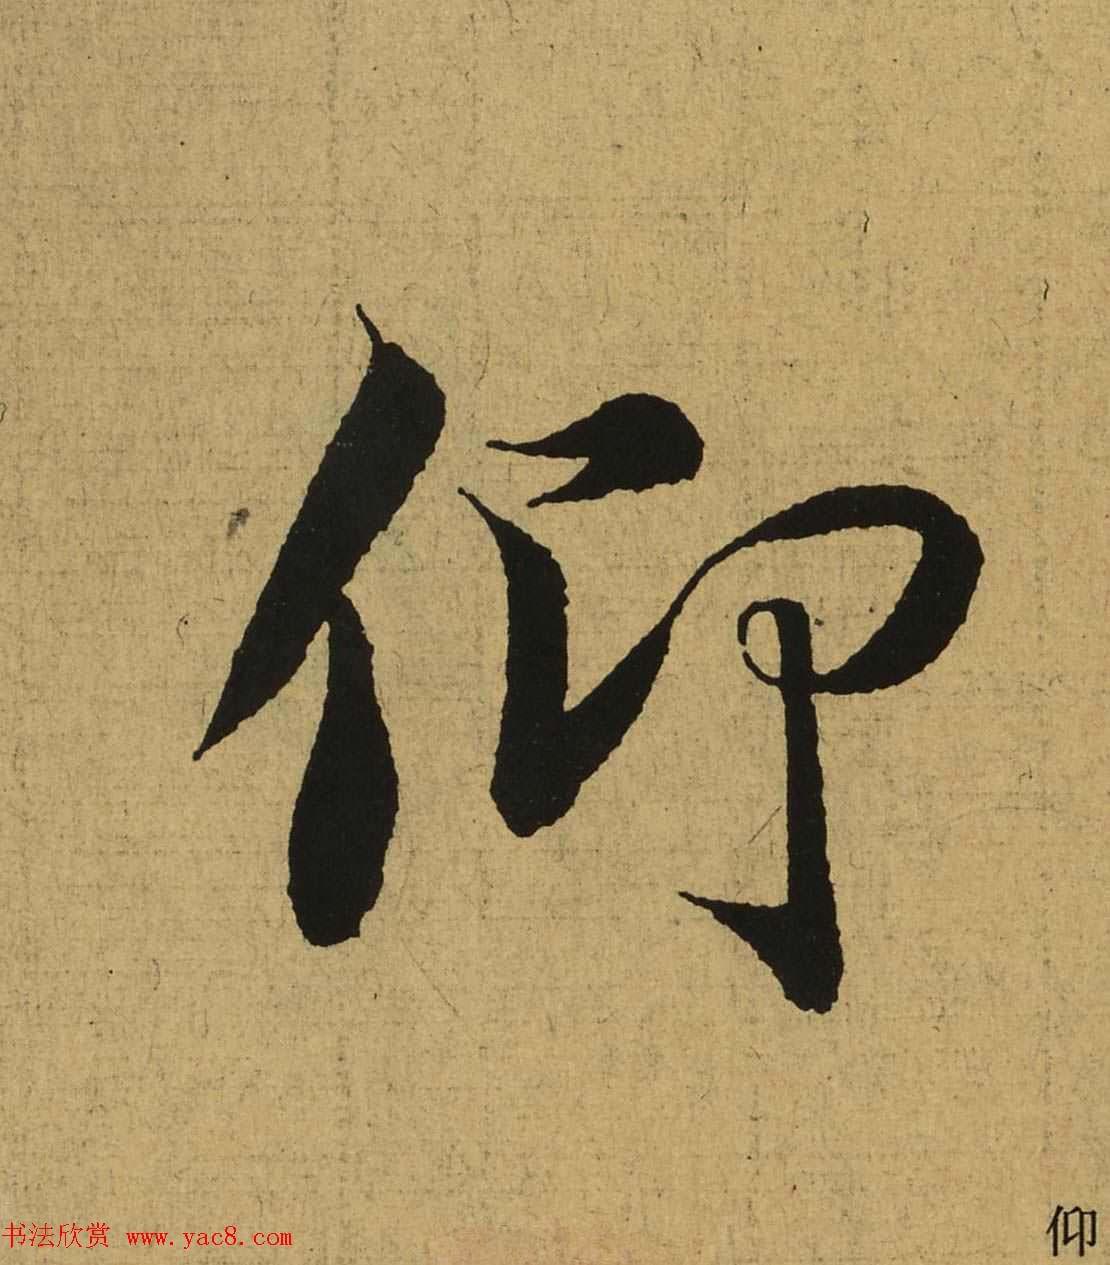 仰
书法欣赏 www.yac8.com
仰